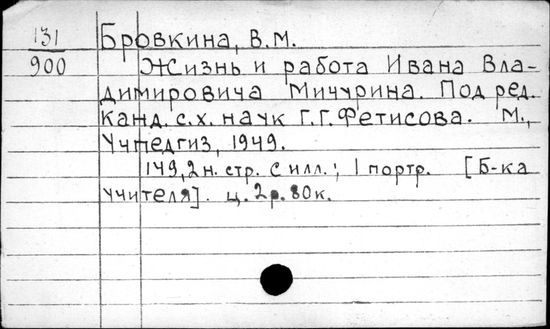 131 Бровкина, В.М.
900 Жизнь и работа Ивана Вла-
димировича Мичурина. Под ред.
канд. с.х. наук Г.Г. Фетисова. М.,
Учпедгиз, 1949.
149, 2 н. стр. с илл.; 1 портр. [Б-ка
учителя]. ц. 2 р. 80 к.